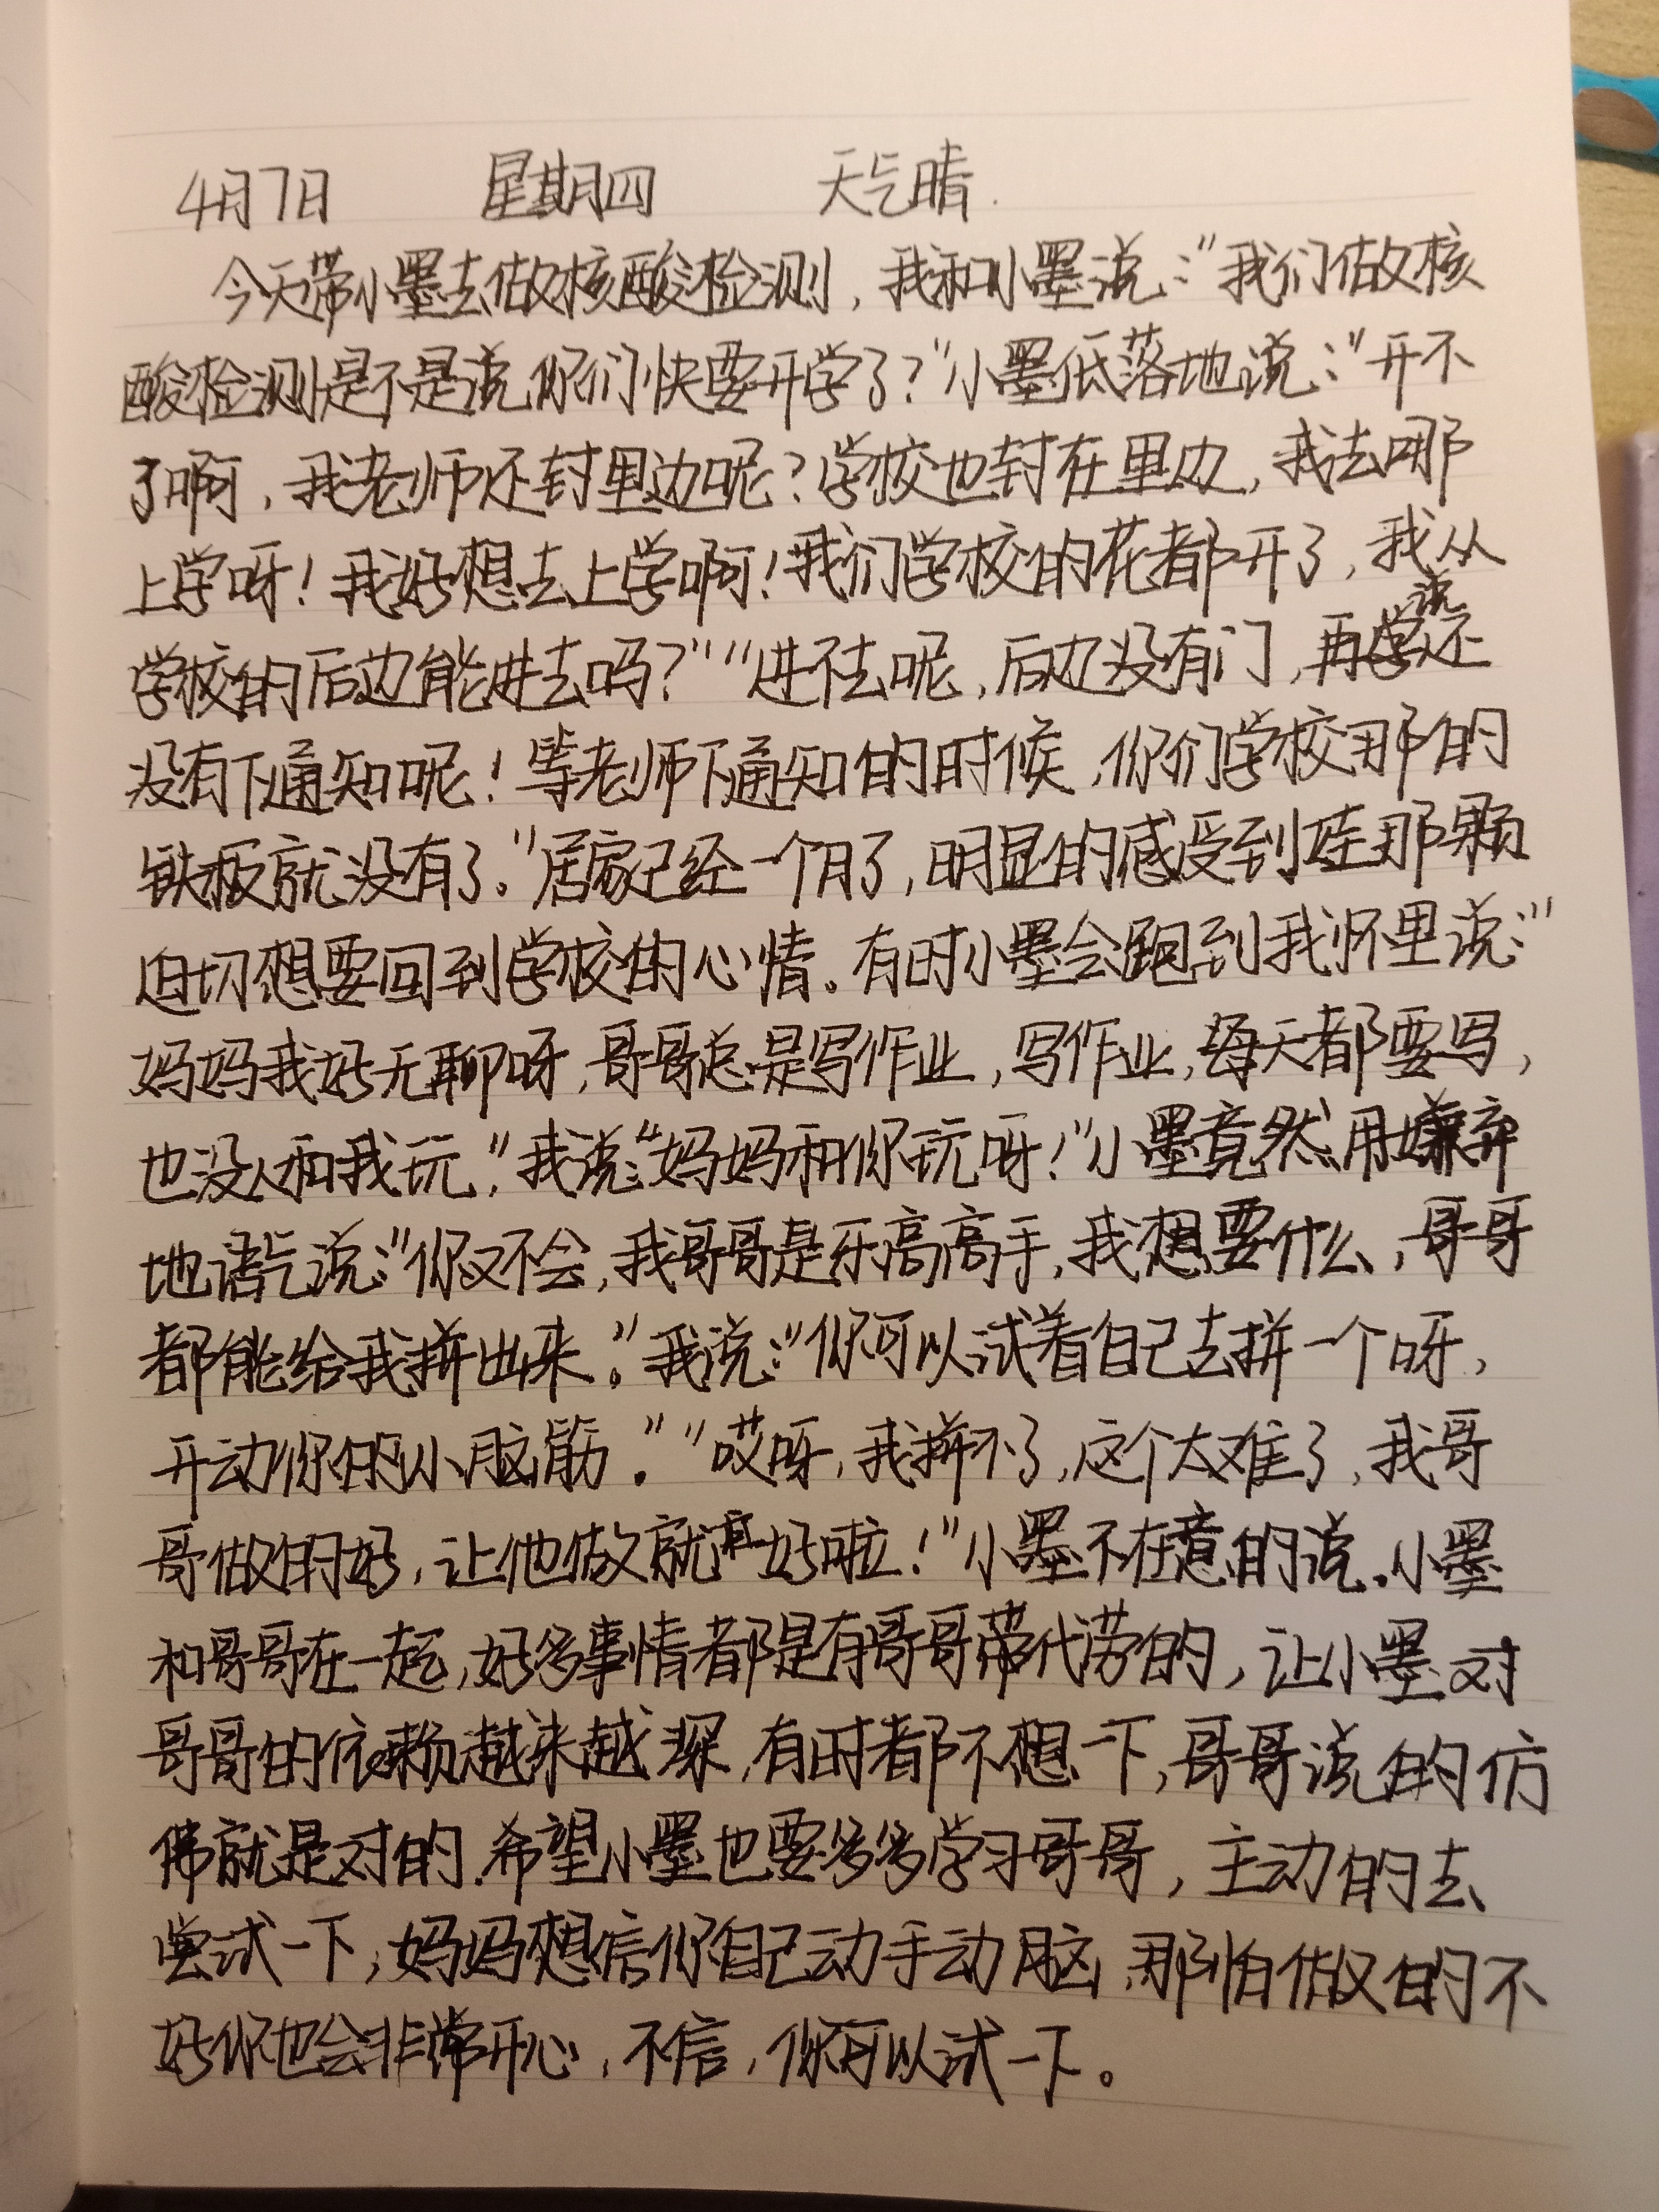 4月7日 星期四 天气晴.
今天带小墨去做核酸检测,我和小墨说:“我们做核
酸检测是不是说你们快要开学了?”小墨低落地说:“开不
了啊,我老师还封里边呢?学校也封在里边,我去哪
上学呀!我好想去上学啊!我们学校的花都开了,我从
学校的后边能进去吗?”“进不去呢,后边没有门,再说还
没有下通知呢!等老师下通知的时候,你们学校那的
铁板就没有了。”居家已经一个月了,明显的感受到娃那颗
迫切想要回到学校的心情。有时小墨会跑到我怀里说:“
妈妈我好无聊呀,哥哥总是写作业,写作业,每天都要写,
也没人和我玩,”我说:“妈妈和你玩呀!”小墨竟然用嫌弃
地语气说:“你又不会,我哥哥是牙高高手,我想要什么,哥哥
都能给我拼出来。”我说:“你可以试着自己去拼一个呀,
开动你的小脑筋。”“哎呀,我拼不了,这个太难了,我哥
哥做的好,让他做就好啦!”小墨不在意的说.小墨
和哥哥在一起,好多事情都是有哥哥代劳的,让小墨对
哥哥的依赖越来越深,有时都不想一下,哥哥说的仿
佛就是对的.希望小墨也要多多学习哥哥,主动的去
尝试一下,妈妈想信你自己动手动脑,那怕做的不
好你也会非常开心,不信,你可以试一下。